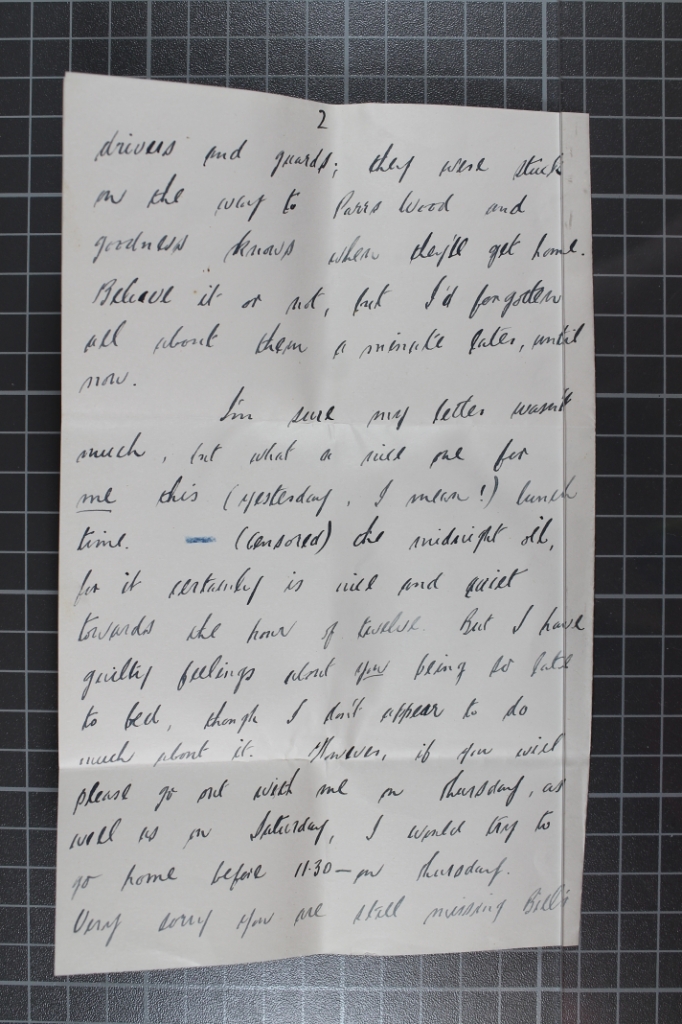 2
drivers and guards; they were stuck
on the way to Parrs Wood and
goodness knows when they'll get home.
Believe it or not, but I'd forgotten
all about them a minute later, until
now.
I'm sure my letter wasn't
much, but what a nice one for
me this (yesterday, I mean!) lunch
time. (censored) the midnight oil,
for it certainly is nice and quiet
towards the hour of twelve. But I have
guilty feelings about you being so late
to bed, though I don't appear to do
much about it. However, if you will
please go out with me on Thursday, as
well as on Saturday, I would try to
go home before 11.30 — on Thursday.
Very sorry you are still missing Bill's